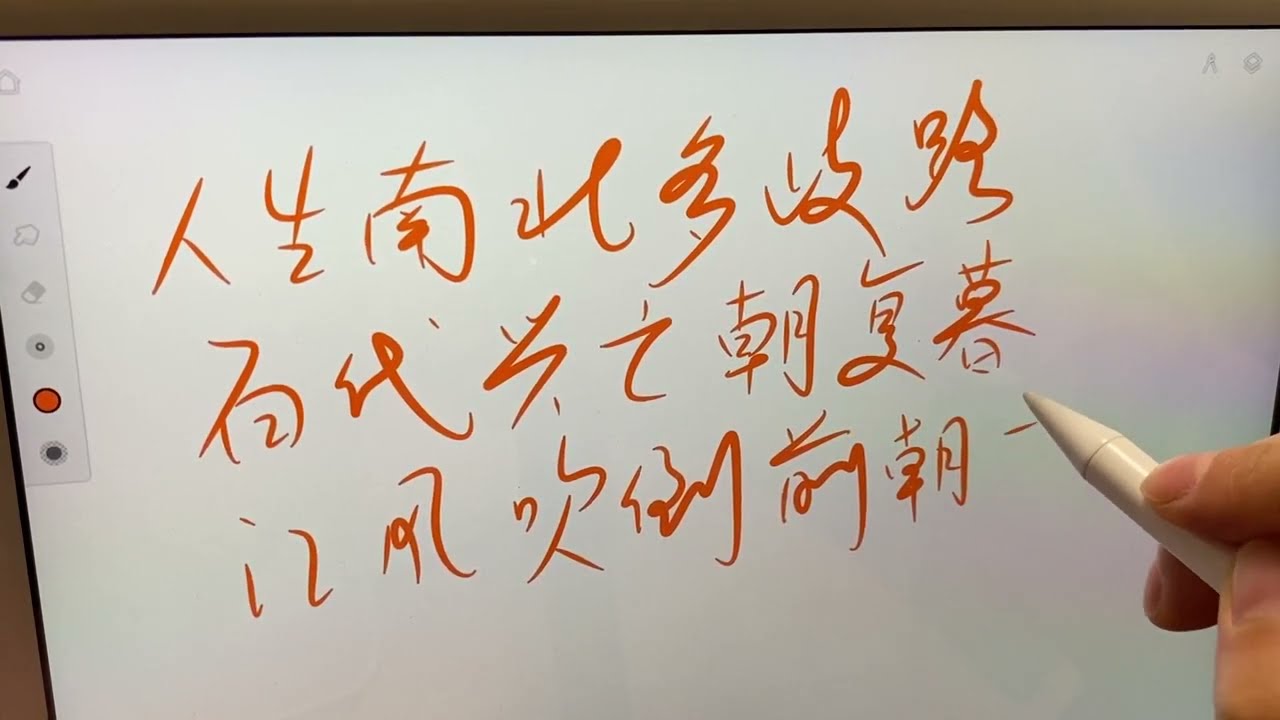 人生南北多歧路
百代兴亡朝复暮
江风吹倒前朝